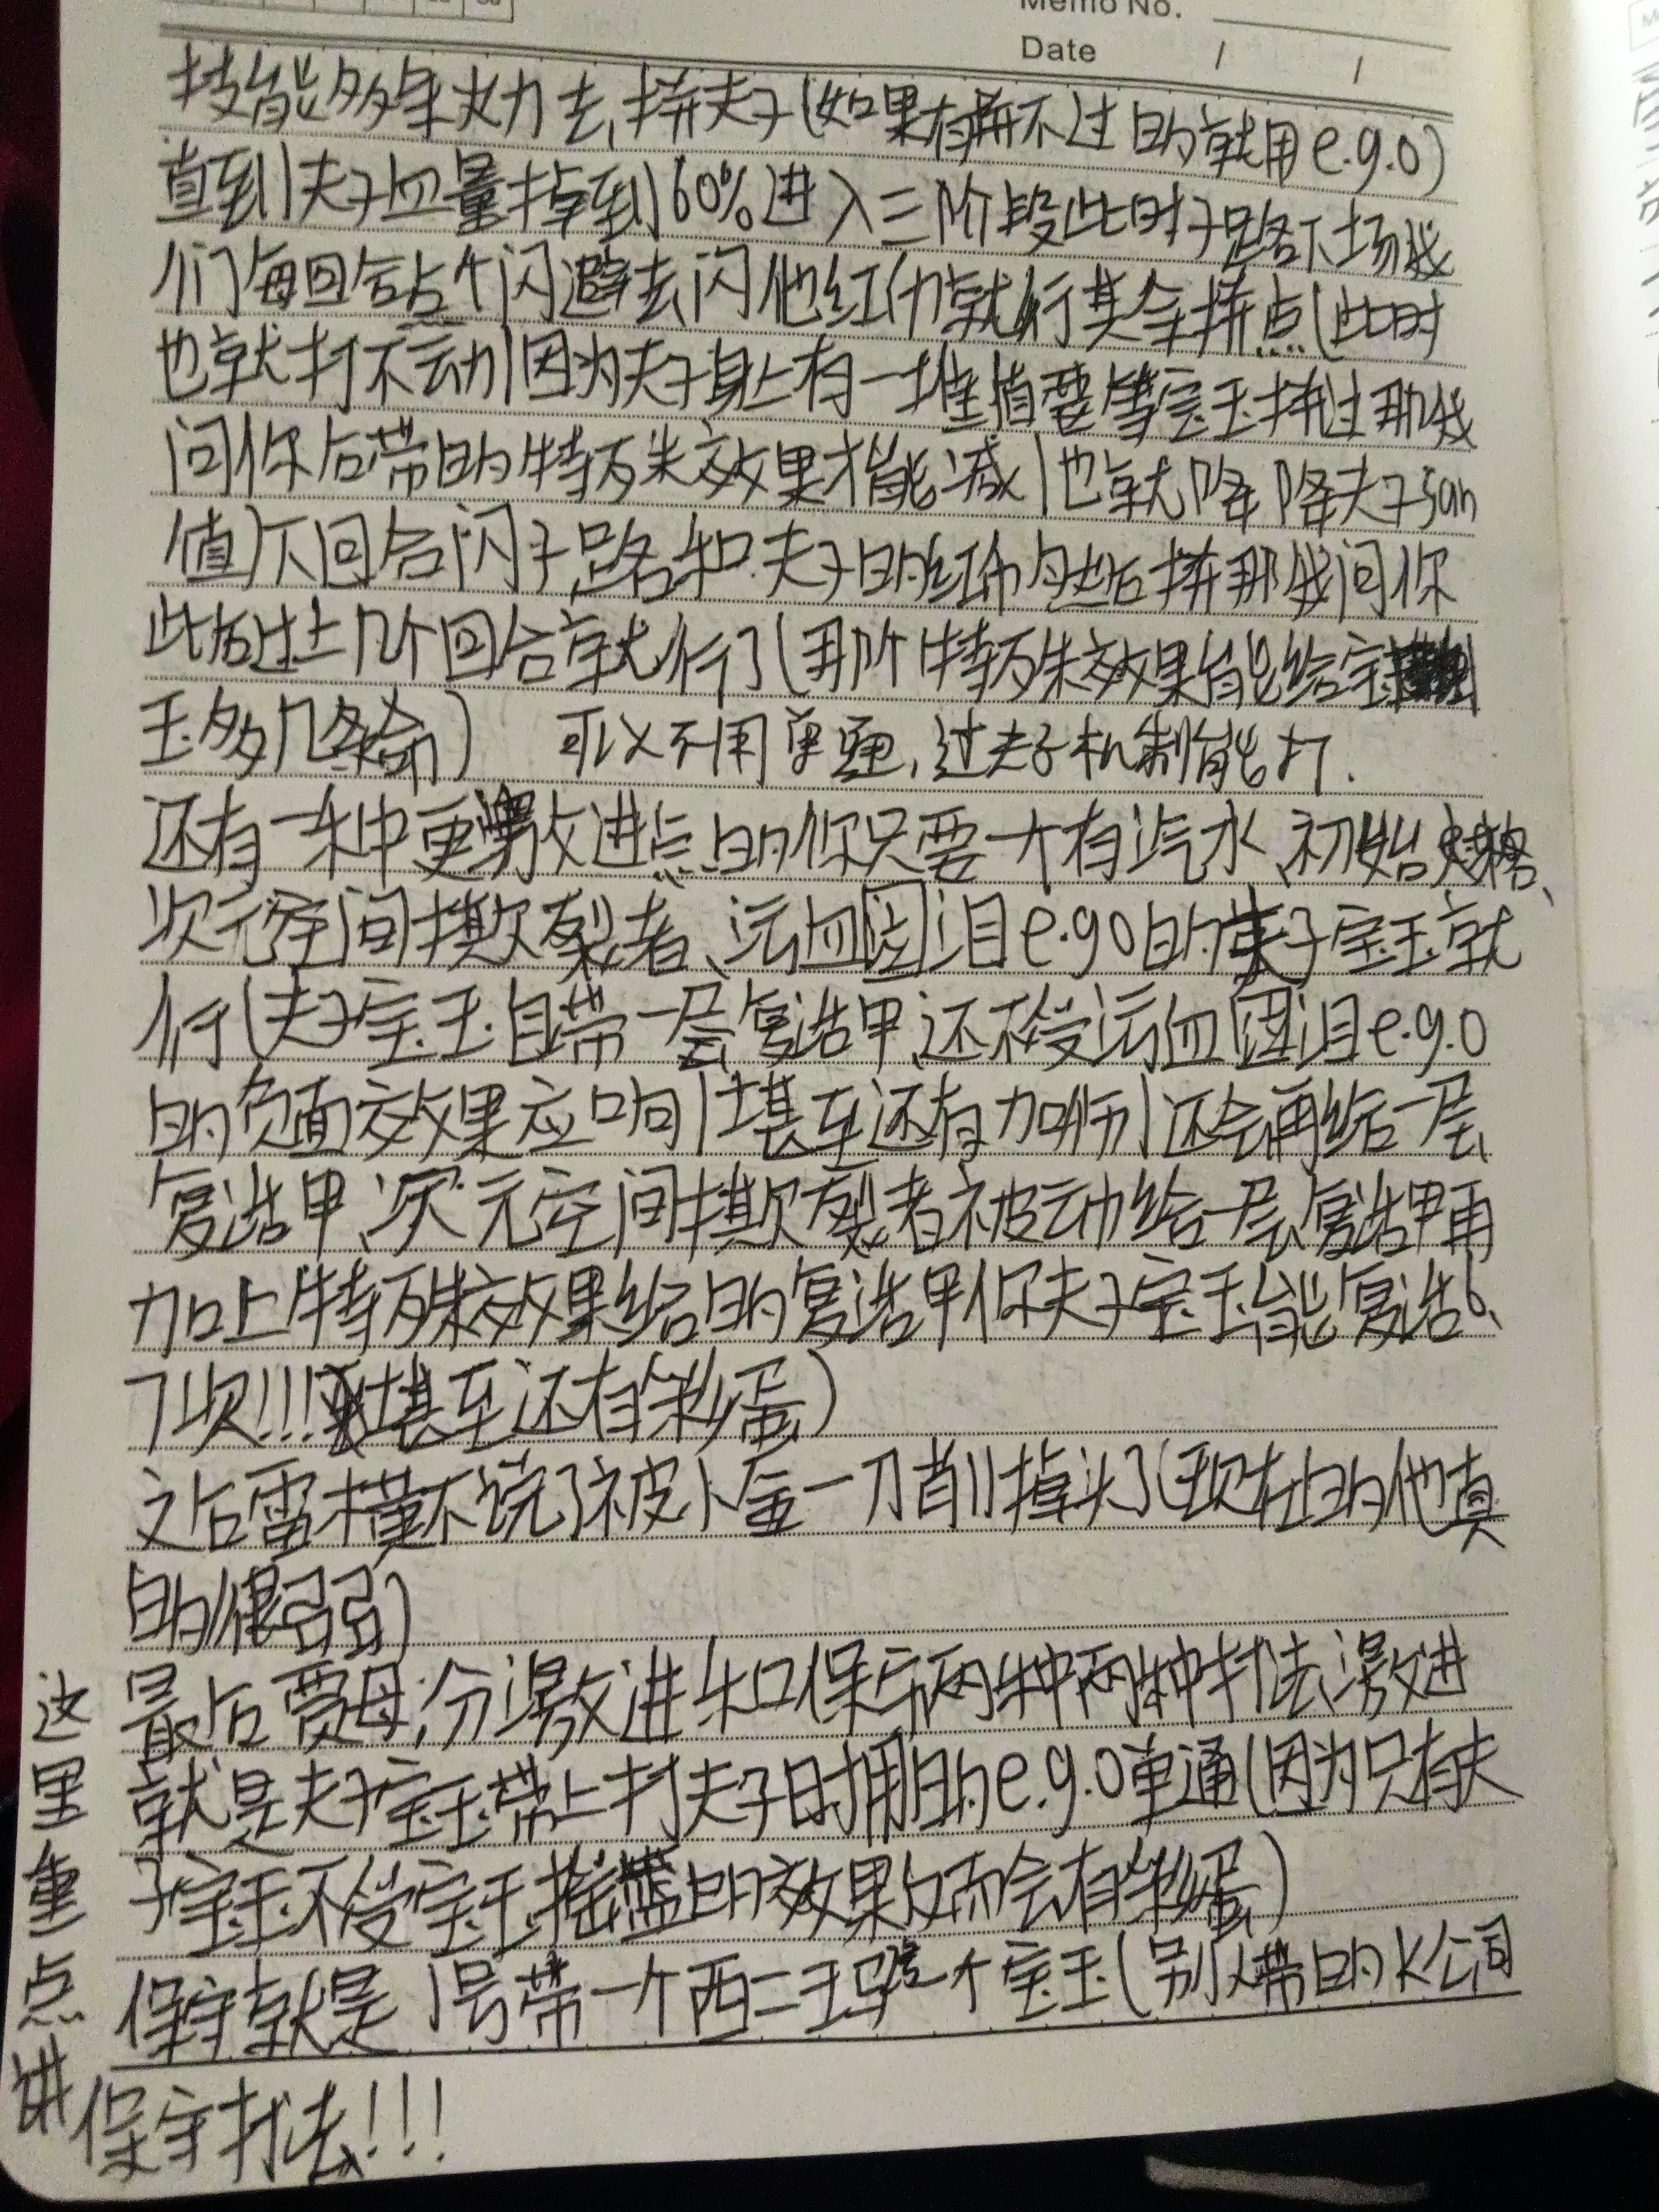 Memo No.
Date / /
技能多年火力去拼夫子(如果有拼不过的就用e.g.o)
直到夫子血量掉到60%进入三阶段此时子路下场我
们每回合点个闪避去闪他红的就行其余拼点(此时
也就打不动因为夫子身上有一堆值要等宝玉拼过那我
问你后带的特殊效果才能减)也就降降夫子san
值下回合闪子路和夫子的红和 然后拼那我问你
此后过上几个回合就行了(那个特殊效果能给宝
玉多几条命) 可以不用单通,过夫子机制能打.
还有一种更激进点的你只要一个有汽水、初始
次元空间撕裂者、沄血 泪e.g.o的夫子宝玉就
行(夫子宝玉自带一层复活甲,还不受沄血 泪e.g.o
的负面效果应响(甚至还有加 )还会再给一层
复活甲、次元空间撕裂者被动给一层复活甲再
加上特殊效果给的复活甲你夫子宝玉能复活6、
7次!!!甚至还有彩蛋)
之后雷横不说了被卜 一刀削掉头了(现在的他真
的很弱)
最后贾母,分激进和保守两种两种打法,激进
就是夫子宝玉带上打夫子时用的e.g.o单通(因为只有夫
子宝玉不受宝玉摇 的效果反而会有彩蛋)
保守就是1号带一个西二 个宝玉(别人带的K公司
这里重点讲
保守打法!!!